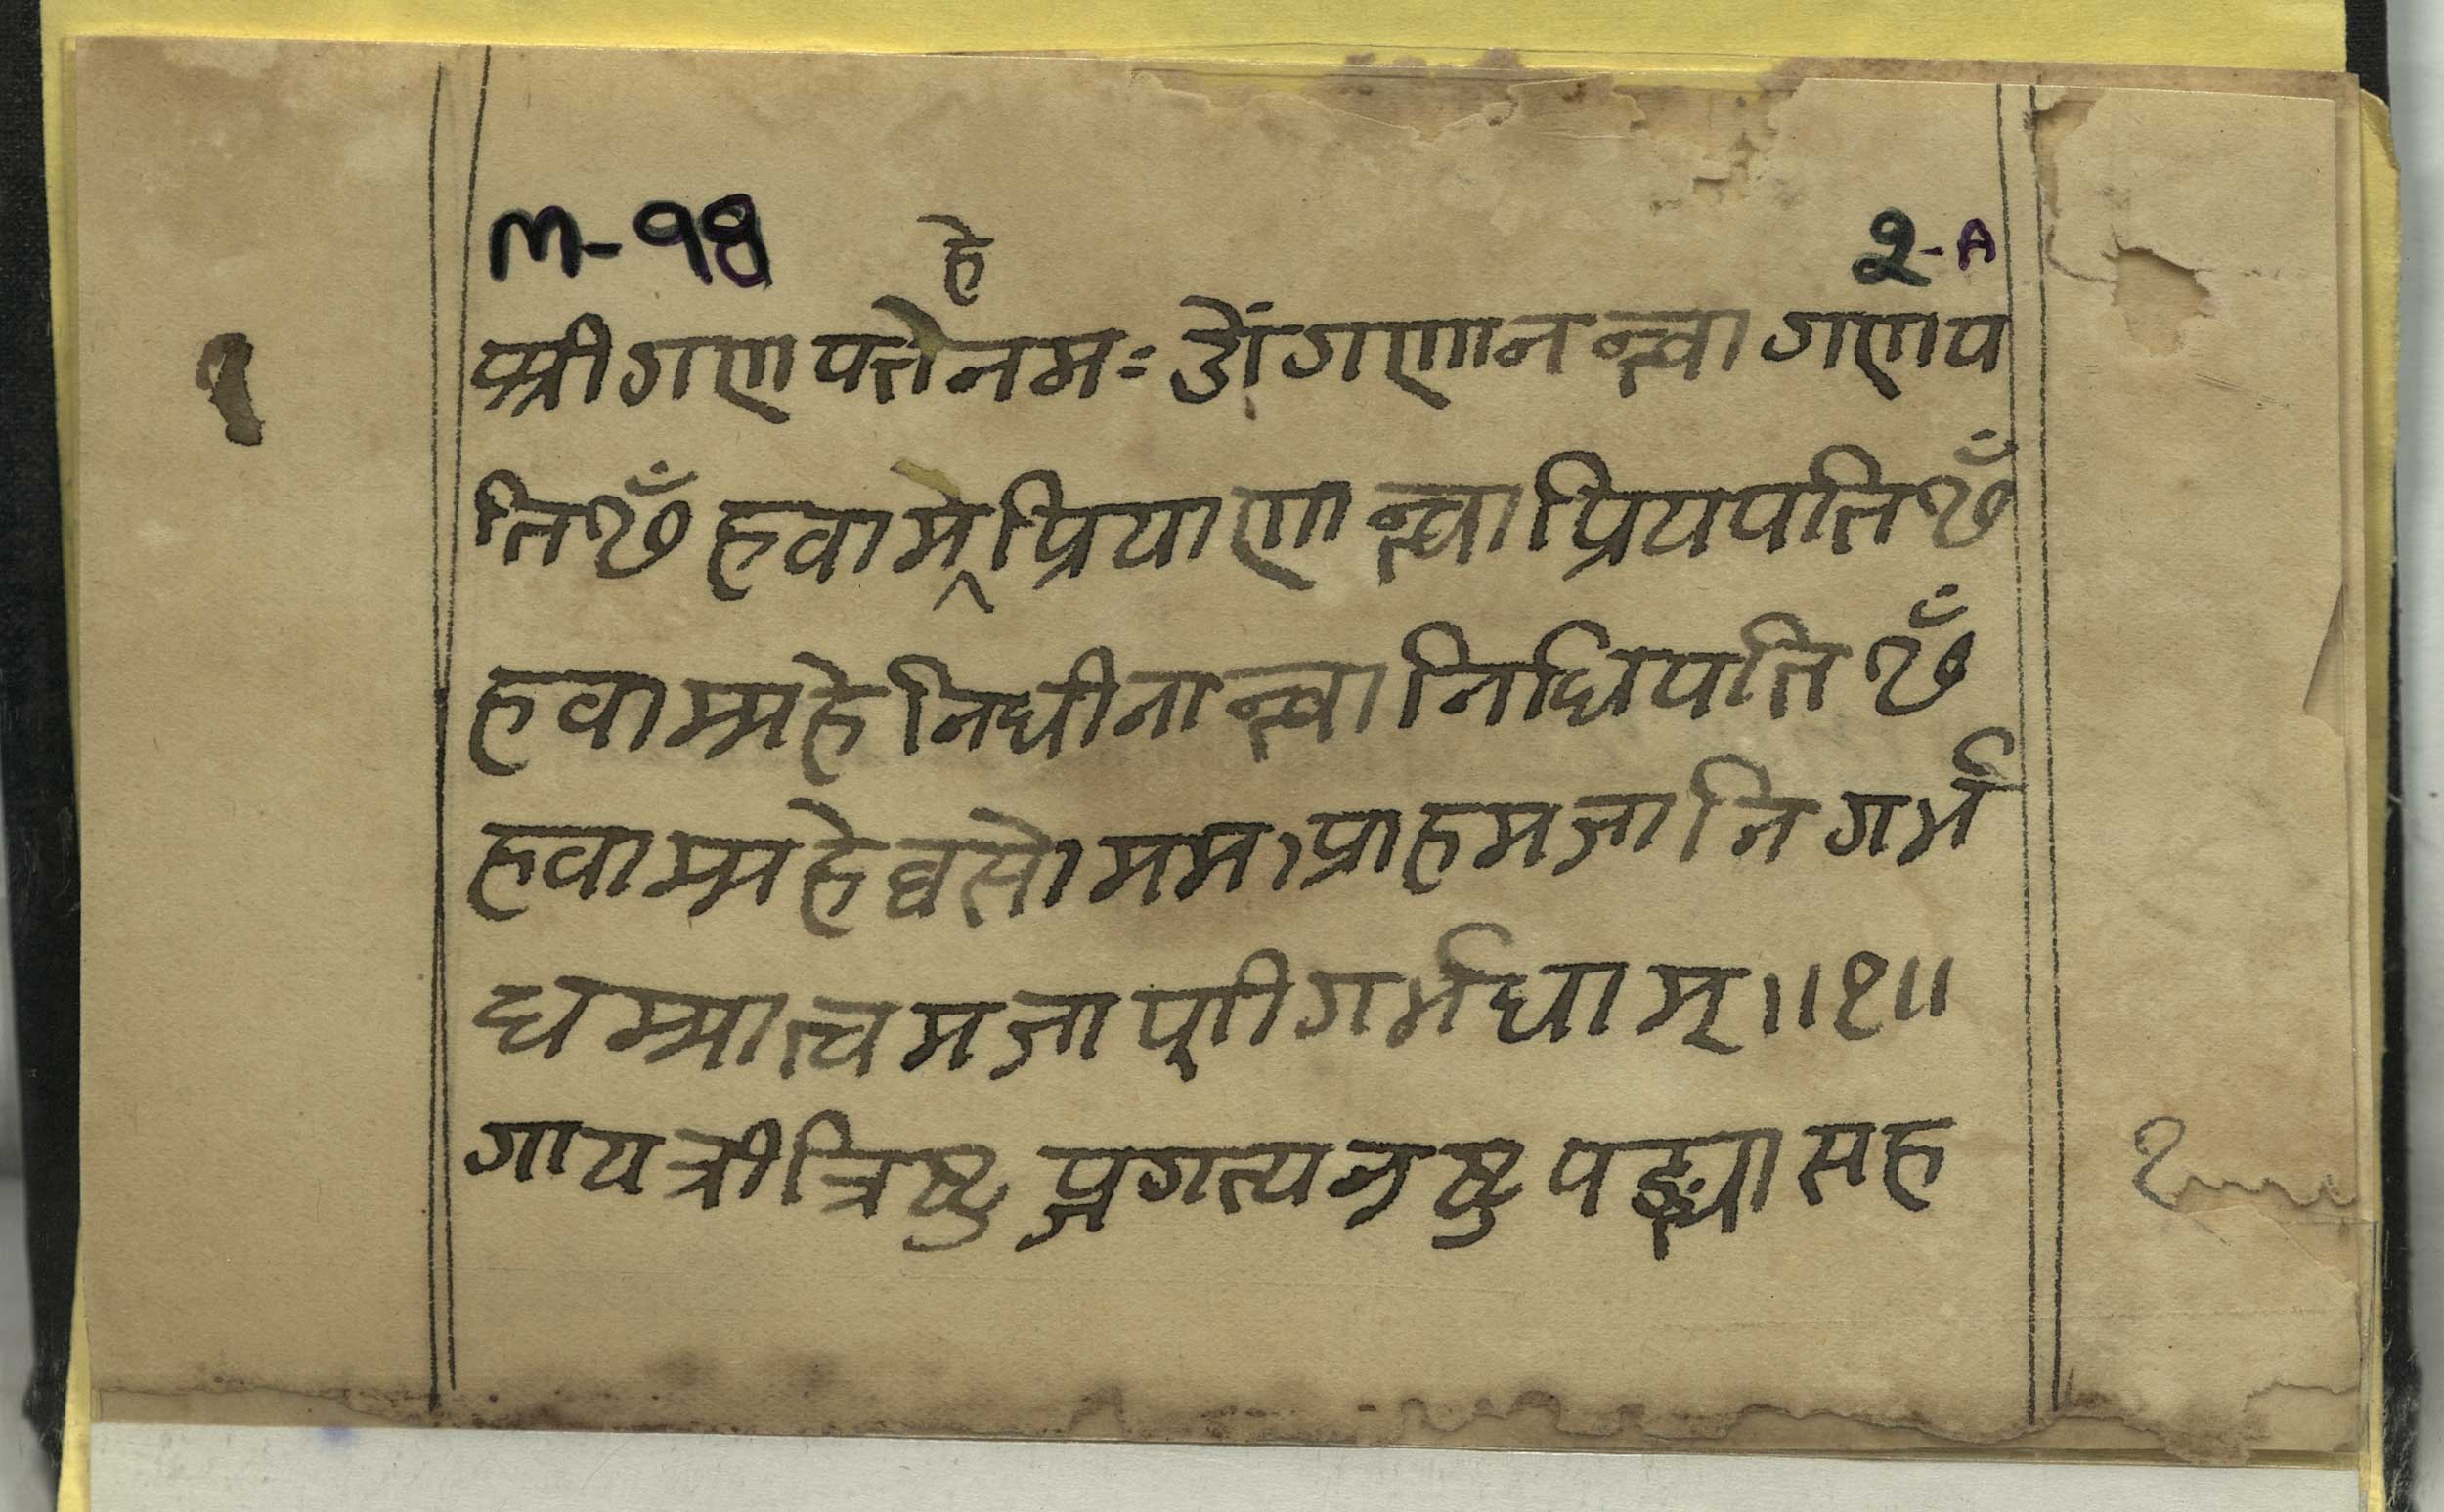 M-98
2-A
हे
श्रीगणपतेनमः ओंगणानन्त्वा गणप
तिᳬं हवामे प्रियाणान्त्वा प्रियपतिᳬं
हवाम्महे निधीनान्त्वा निधिपतिᳬं
हवाम्महे व्वसो मम। प्राहमजानि गर्भ
धम्मात्त्वमजाप्णी गर्भधाम् ॥१॥
गायत्री त्रिष्टुप्जगत्यनुष्टुपङ्क्त्या सह
१